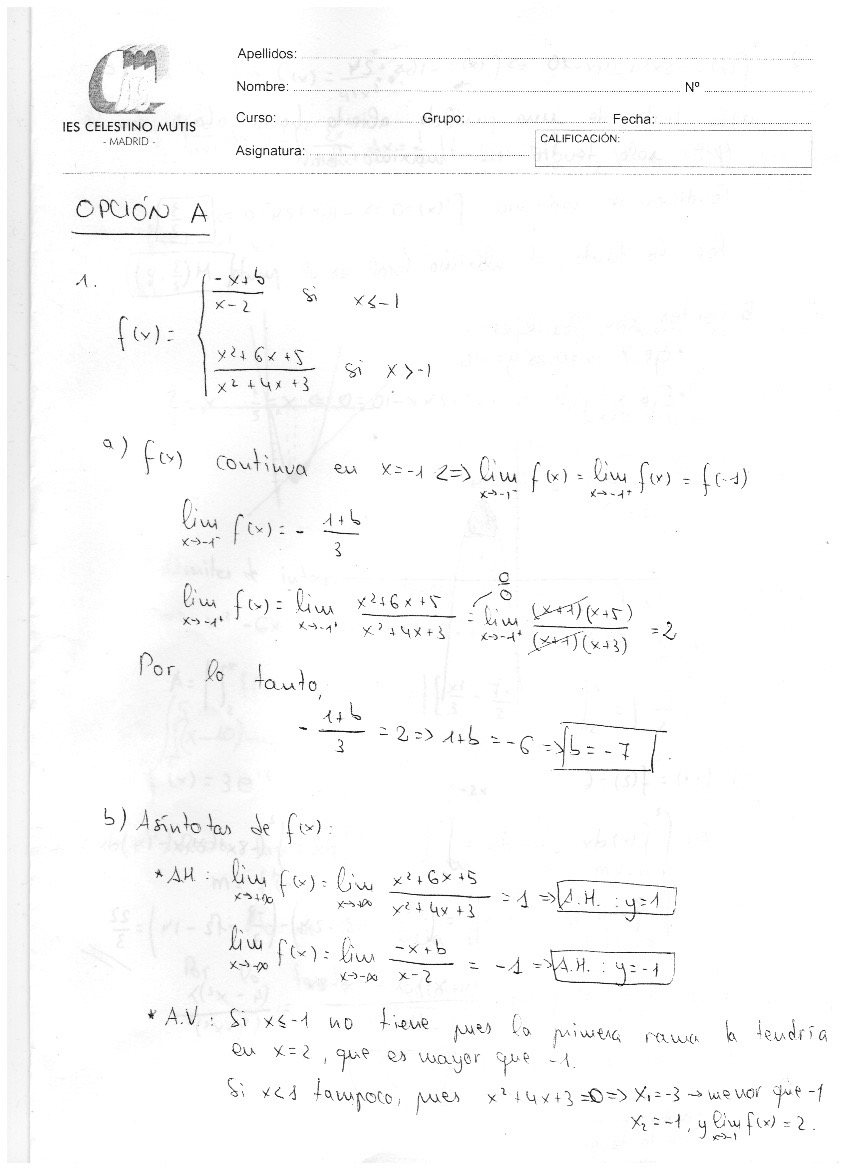 Apellidos:
Nombre: Nº
Curso: Grupo: Fecha:
Asignatura: CALIFICACIÓN:
IES CELESTINO MUTIS
- MADRID -
OPCIÓN A
1.
f(x)= { (-x+b)/(x-2) si x≤-1
(x²+6x+5)/(x²+4x+3) si x>-1
a) f(x) continua en x=-1 <=> lim x→-1⁻ f(x) = lim x→-1⁺ f(x) = f(-1)
lim x→-1⁻ f(x) = - (1+b)/3
lim x→-1⁺ f(x) = lim x→-1⁺ (x²+6x+5)/(x²+4x+3) = 0/0 lim x→-1⁺ (x+1)(x+5)/(x+1)(x+3) = 2
Por lo tanto,
- (1+b)/3 = 2 => 1+b = -6 => b = -7
b) Asíntotas de f(x):
* A.H.: lim x→+∞ f(x) = lim x→+∞ (x²+6x+5)/(x²+4x+3) = 1 => A.H.: y=1
lim x→-∞ f(x) = lim x→-∞ (-x+b)/(x-2) = -1 => A.H.: y=-1
* A.V: Si x≤-1 no tiene pues la primera rama la tendría
en x=2, que es mayor que -1.
Si x<1 tampoco, pues x²+4x+3=0 => x₁=-3 → menor que -1
x₂=-1, y lim x→-1 f(x)=2.